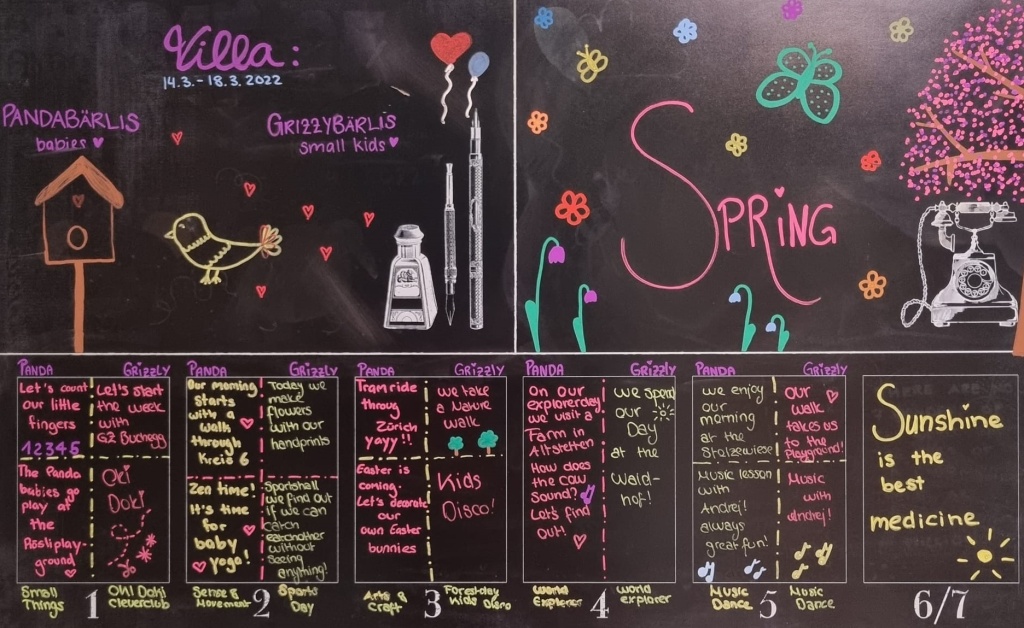 Villa:
14.3. - 18.3. 2022
PANDABÄRLIS
babies
GRIZZYBÄRLIS
small kids
SPRING
PANDA
GRIZZLY
Let's count
our little
fingers
1 2 3 4 5
Let's start
the week
with
G2 Buchegg
The Panda
babies go
play at
the
Rösliplay-
ground
Oki
Doki
Small
Things
1
Oh! Doki
Cleverclub
PANDA
GRIZZLY
Our morning
starts
with a
walk
through
Kreis 6
Today we
make
flowers
with our
handprints
Zen time!
It's time
for
baby
yoga!
Sportshall
we find out
if we can
catch
eachnother
without
seeing
anything!
Sense &
Movement
2
Sports
Day
PANDA
GRIZZLY
Tram ride
throug
Zürich
yayy!!
We take
a Nature
walk
Easter is
coming.
Let's decorate
our
own Easter
bunnies
Kids
Disco!
Arts &
Craft
3
Forestday
Kids Disco
PANDA
GRIZZLY
On our
explorerday
we visit a
Farm in
Altstetten
How does
the cow
sound?
Let's find
out!
We spend
our
Day
at the
Wald-
hof!
World
Explorer
4
World
explorer
PANDA
GRIZZLY
We enjoy
our
morning
at the
Stolzewiese
Our
walk
takes us
to the
playground!
Music lesson
with
Andrej!
always
great fun!
Music
with
Andrej!
Music
Dance
5
Music
Dance
Sunshine
is the
best
medicine
6/7